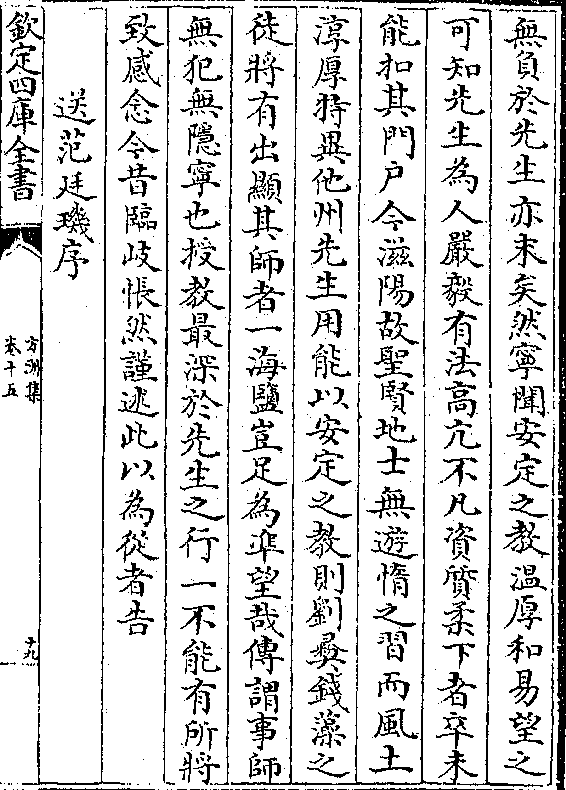 無負於先生亦末矣然寧聞安定之教溫厚和易望之
可知先生為人嚴毅有法高亢不凡資質柔下者卒未
能扣其門户今滋陽故聖賢地士無遊惰之習而風土
淳厚特異他州先生用能以安定之教則劉彛錢藻之
徒將有出顯其師者一海鹽豈足為凖望哉傳謂事師
無犯無隱寧也授教最深於先生之行一不能有所將
致感念今昔臨岐悵然謹述此以為從者告
送范廷璣序
欽定四庫全書
方洲集
卷十五
十九